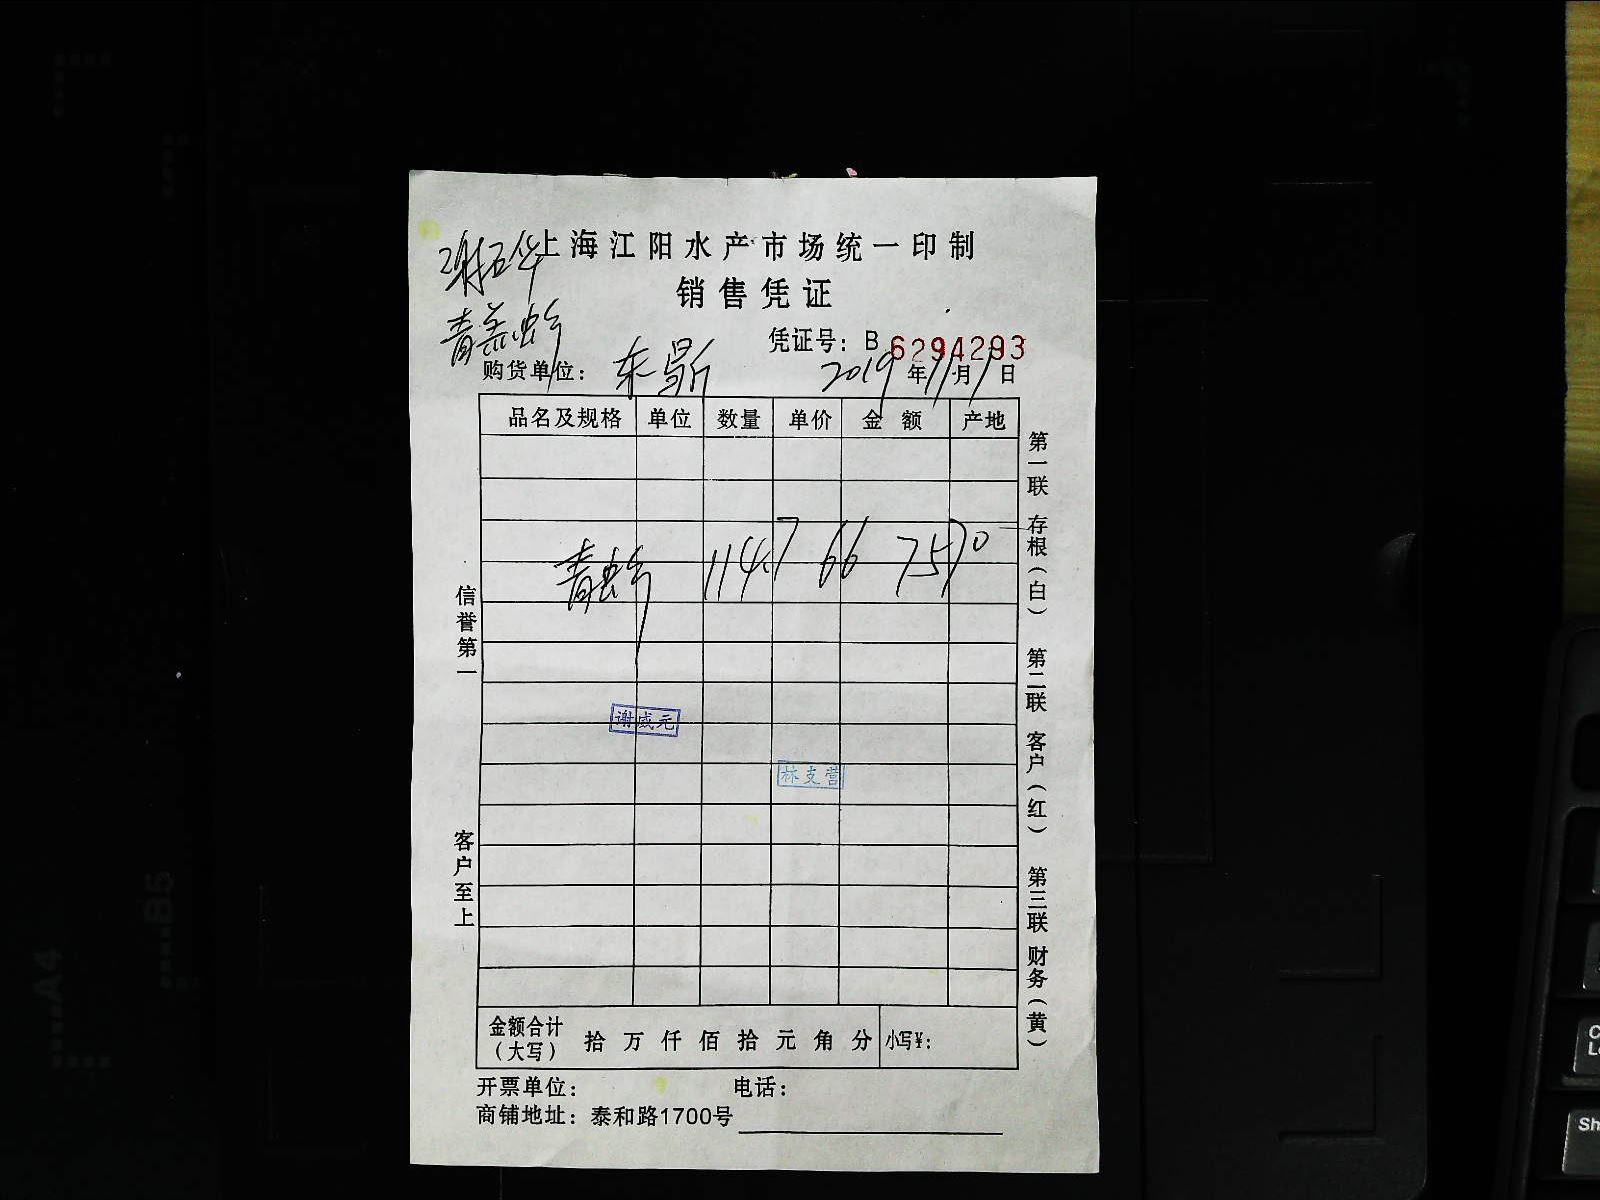 上海江阳水产市场统一印制
销售凭证
凭证号：B 6294293
购货单位： 东 2019年11月1日
品名及规格 单位 数量 单价 金额 产地
青虾 114.7 66 7570
谢成元
林支营
信誉第一
客户至上
第一联 存根（白） 第二联 客户（红） 第三联 财务（黄）
金额合计（大写） 拾 万 仟 佰 拾 元 角 分 小写¥：
开票单位： 电话：
商铺地址：泰和路1700号
A4
B5
Sh